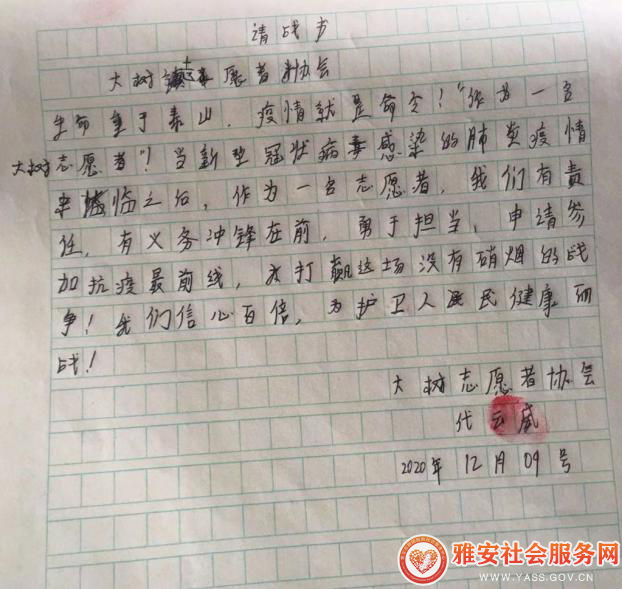 请战书
大树志愿者协会
生命重于泰山，疫情就是命令！“作为一名
大树志愿者”！当新型冠状病毒感染的肺炎疫情
来临之后，作为一名志愿者，我们有责
任，有义务冲锋在前，勇于担当，申请参
加抗疫最前线，打赢这场没有硝烟的战
争！我们信心百倍，为护卫人民健康而
战！
大树志愿者协会
代云威
2020年12月09号
雅安社会服务网
WWW.YASS.GOV.CN